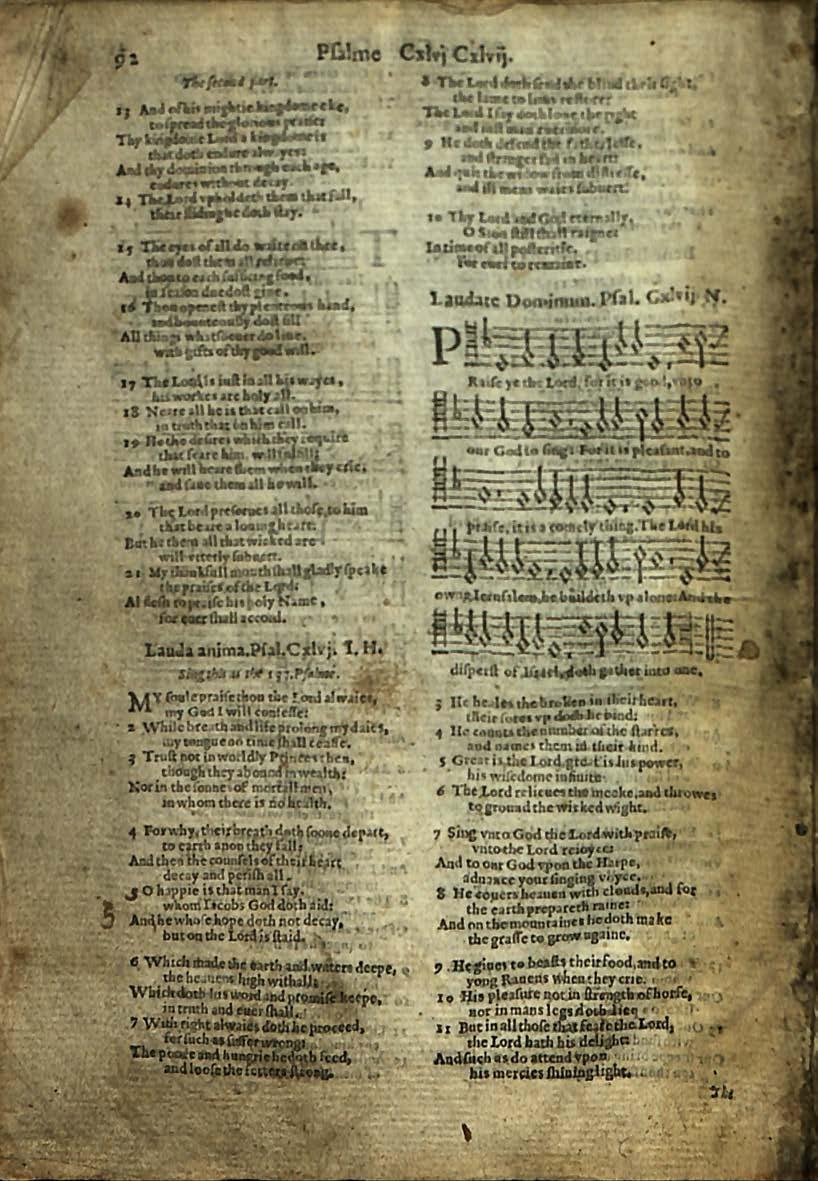 92
Psalme Cxlvj Cxlvij.
The second part.
13 And of his mightie kingdome eke,
to spread the glorious praise:
Thy kingdome Lord a kingdome is
that doth endure alwayes:
And thy dominion through each age,
endures without decay.
14 The Lord vpholdeth them that fall,
their sliding he doth stay.
15 The eyes of all do waite on thee,
thou dost them all relieue:
And thou to each sufficing food,
in season due dost giue.
16 Thou openest thy plenteous hand,
and bounteously dost fill
All things whatsoeuer do liue,
with gifts of thy good will.
17 The Lord is iust in all his wayes,
his workes are holy all.
18 Neare all he is that call on him,
in truth that on him call.
19 He the desires which they require
that feare him, will fulfill:
And he will heare them when they crie,
and saue them all he will.
20 The Lord preserues all those, to him
that beare a louing heart:
But he them all that wicked are
will vtterly subuert.
21 My thankfull mouth shall gladly speake
the praises of the Lord:
Al flesh to praise his holy Name,
for euer shall accord.
Lauda anima. Psal. Cxlvj. I. H.
Sing this as the 137. Psalme.
MY soule praise thou the Lord alwaies,
my God I will confesse:
2 While breath and life prolong my daies,
my tongue no time shall ceasse.
3 Trust not in worldly Princes then,
though they abound in wealth:
Nor in the sonnes of mortall men,
in whom there is no health.
4 For why, their breath doth soone depart,
to earth anon they fall:
And then the counsels of their heart
decay and perish all.
5 O happie is that man I say,
whom Iacobs God doth aid:
And he whose hope doth not decay,
but on the Lord is staid.
6 Which made the earth and waters deepe,
the heauens high withall:
Which doth his word and promise keepe,
in truth and euer shall.
7 With right alwaies doth he proceed,
for such as suffer wrong:
The poore and hungrie he doth feed,
and loose the fetters strong.
8 The Lord doth send the blind their sight,
the lame to limbs restore:
The Lord I say doth loue the right
and iust man euermore.
9 He doth defend the fatherlesse,
and stranger sad in heart:
And quit the widow from distresse,
and ill mens waies subuert.
10 Thy Lord and God eternally,
O Sion still shall raigne:
In time of all posteritie,
for euer to remaine.
Laudate Dominum. Psal. Cxlvij N.
PRaise ye the Lord, for it is good, vnto
our God to sing: For it is pleasant, and to
praise, it is a comely thing. The Lord his
owne Ierusalem, he buildeth vp alone: And the
disperst of Israel, doth gather into one.
3 He heales the broken in their heart,
their sores vp doth he bind:
4 He counts the number of the starres,
and names them in their kind.
5 Great is the Lord, great is his power,
his wisedome infinite.
6 The Lord relieues the meeke, and throwes
to ground the wicked wight.
7 Sing vnto God the Lord with praise,
vnto the Lord reioyce:
And to our God vpon the Harpe,
aduance your singing voyce.
8 He couers heauen with clouds, and for
the earth prepareth raine:
And on the mountaines he doth make
the grasse to grow againe.
9 He giues to beasts their food, and to
yong Rauens when they crie.
10 His pleasure not in strength of horse,
nor in mans legs doth lie:
11 But in all those that feare the Lord,
the Lord hath his delight:
And such as do attend vpon
his mercies shining light.
The